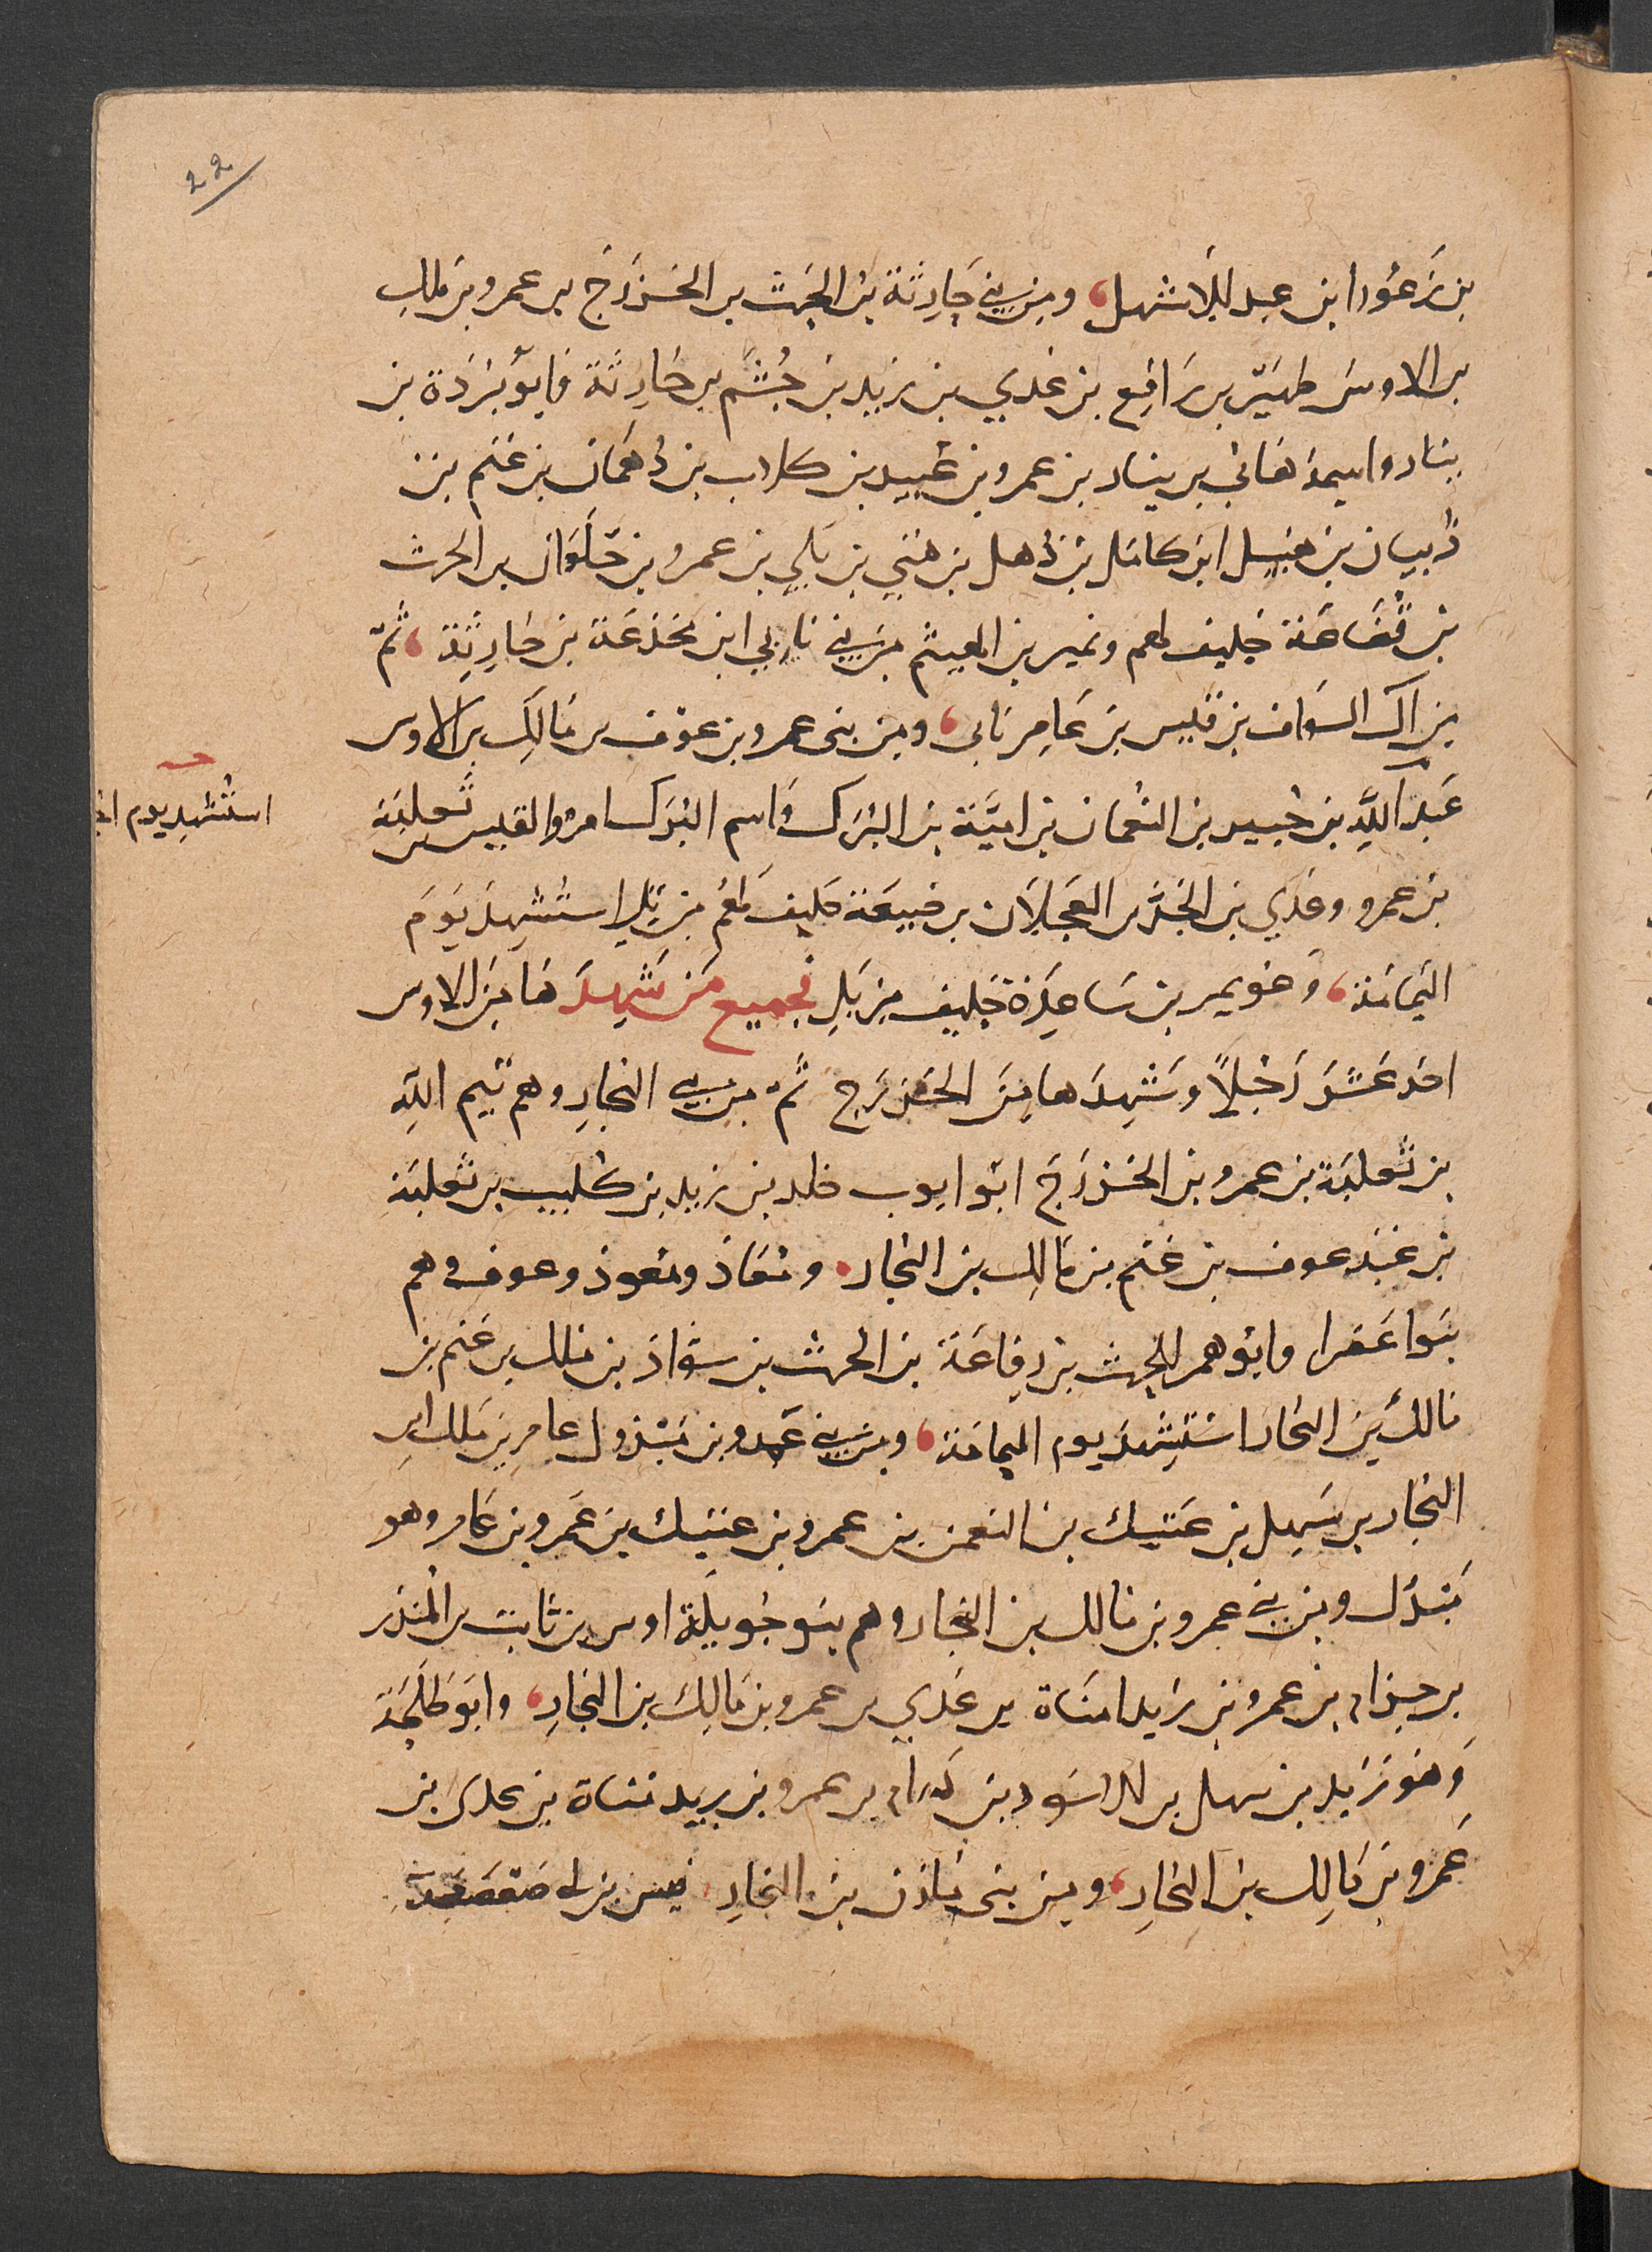 22
بن زَعُورا بن عبد الاشهل، ومن بني حارِثَة بن الحرث بن الخزرَج بن عمرو بن مالك
بن الاوس ظهيّر بن رَافِع بن عَدي بن زيد بن جُشَم بن حَارِثَة وابُو بُردَة بن
ينار واسمه هَاني بن ينار بن عمرو بن عُبيد بن كلاب بن دُهمَان بن غَنم بن
ذُبيان بن هميل ابن كامَل بن ذُهل بن هَني بن بَلي بن عمرو بن حَلَوان بن الحرث
بن قُضَاعَة حَليف لهم ونمير بن الهيثم من بني نابي ابن مَجدعَة بن حَارِثَة، ثمّ
من آل السوّاف بن قَيس بن عَامِر نابى، ومن بنى عمرو بن عوف بن مَالِك بن الاوس
عَبد اللَّهِ بن جُبير بن النُعْمان بن اميَّة بن البُرَك وَاسم البُرَك امرو القيس بن ثَعلبَة
استُشهِد يوم
بن عمرو وعَدي بن الجَدّ بن العَجلَان بن ضُبيعَة حَليف لَهُم من بَلِي استُشهِدَ يَومَ
اليَمامَة، وَعُويمر بن سَاعِدَة حَليف من بَلِي فجميع مَن شَهِدَهَا من الاوس
احَد عَشَر رَجُلاً وَشَهِدَها مِنَ الخَزرَج ثُمّ من بني النجارِ وهم تَيم اللَّهِ
بن ثَعلبَة بن عمرو بن الخَزرَج ابُو ايوب خلد بن زيد بن كُليب بن ثَعلبَة
بن عَبد عوف بن غَنم بن مَالِك بن النجار، ومُعَاذ ومُعوذ وعوف وهم
بَنوا عَفرا وابُوهم الحرث بن رِفاعَة بن الحرث بن سَواد بن مَالك بن غنم بن
مَالك بن النجار استُشِهدَ يوم اليمامَة، ومن بني عَمرو بن مَبْذول عامر بن مَلك ابن
النجار بن سَهِل بن عَتيك بن النعمن بن عمرو بن عتيك بن عَمرو بن عَامر وهو
مَبذُل ومن بني عمرو بن مَالك بن النجار وهم بنو حُدَيلة اوس بن ثابت بن المُنذر
بن حِزام بن عمرو بن زَيد امنَاة بن عَدي بن عمرو بن مَالِك بن النجارِ، وابُو طَلحَة
وَهُو زَيد بن سهل بن الاسَود بن حَرام بن عمرو بن زيد مَنَاة بن عدى بن
عَمرو بن مَالِك بن النجارِ، ومن بنى مَازن بن النجارِ، قيس بن ابى صَعصَعَة